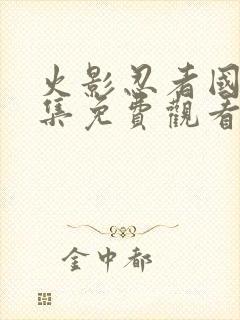 火影忍者國
集免費觀看
金中都